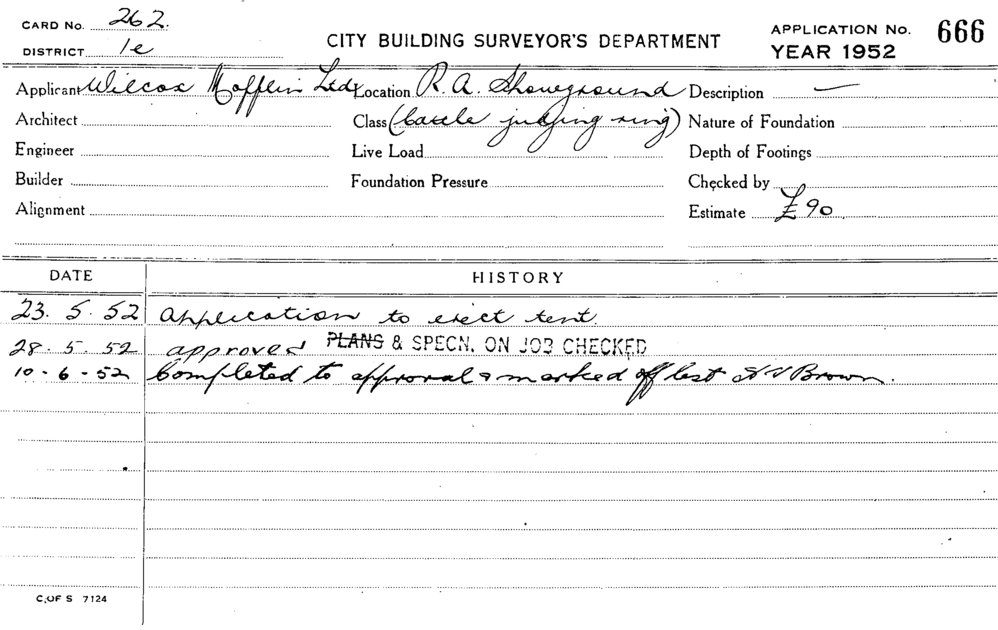 CARD No. 262.
DISTRICT 1e
CITY BUILDING SURVEYOR'S DEPARTMENT
APPLICATION No. 666
YEAR 1952
Applicant Wilcox Mofflin Ltd Location R. A. Showground Description —
Architect Class (cattle judging ring) Nature of Foundation
Engineer Live Load Depth of Footings
Builder Foundation Pressure Checked by
Alignment Estimate £90
DATE HISTORY
23. 5. 52 Application to erect tent.
28. 5. 52 approved PLANS & SPECN. ON JOB CHECKED
10-6-52 Completed to approval & marked off list Brown.
C. OF S 7124